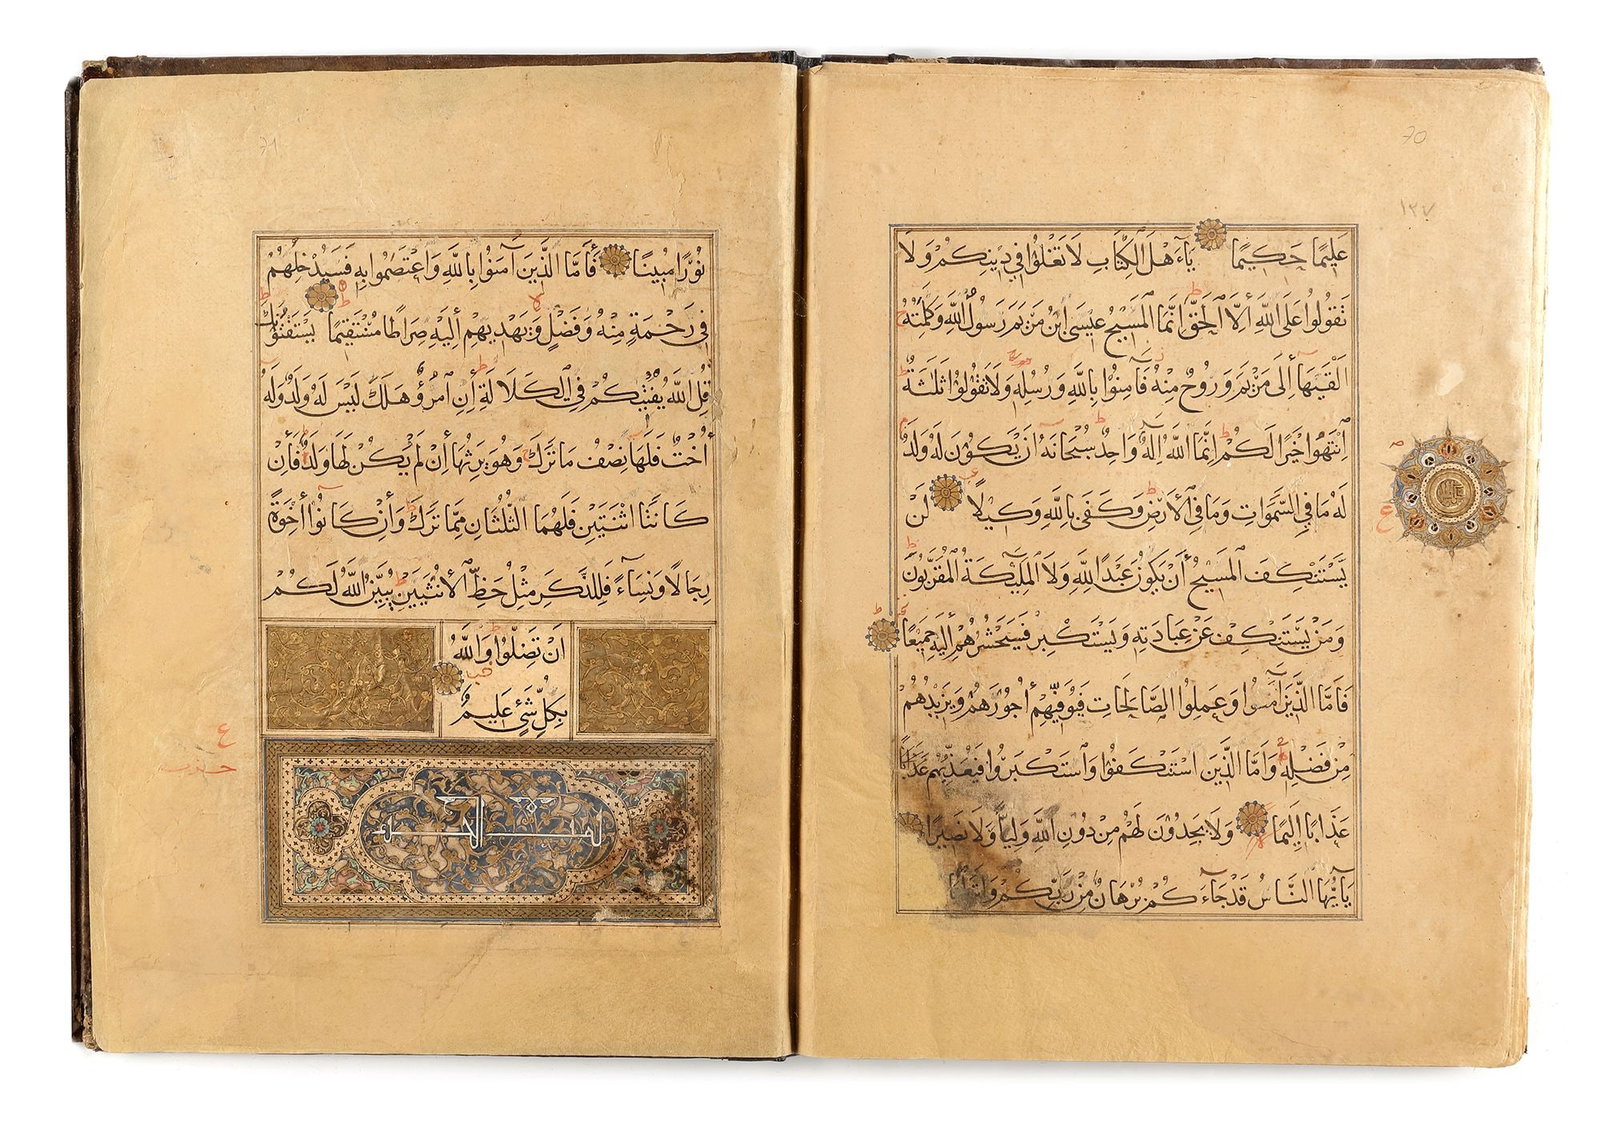 70
١٣٧
عَلِيمًا حَكِيمًا يَاءَهْلَ الْكِتَابِ لَا تَغْلُوا فِي دِينِكُمْ وَلَا
تَقُولُوا عَلَى اللَّهِ إِلَّا الْحَقَّ إِنَّمَا الْمَسِيحُ عِيسَى ابْنُ مَرْيَمَ رَسُولُ اللَّهِ وَكَلِمَتُهُ
أَلْقَيهَا إِلَى مَرْيَمَ وَرُوحٌ مِنْهُ فَآمِنُوا بِاللَّهِ وَرُسُلِهِ وَلَا تَقُولُوا ثَلٰثَةٌ
اِنْتَهُوا خَيْرًا لَكُمْ إِنَّمَا اللَّهُ إِلَهٌ وَاحِدٌ سُبْحَانَهُ أَنْ يَكُونَ لَهُ وَلَدٌ
لَهُ مَا فِي السَّمَوَاتِ وَمَا فِي الْأَرْضِ وَكَفَى بِاللَّهِ وَكِيلًا لَنْ
يَسْتَنْكِفَ الْمَسِيحُ أَنْ يَكُونَ عَبْدًا لِلَّهِ وَلَا الْمَلٰئِكَةُ الْمُقَرَّبُونَ
وَمَنْ يَسْتَنْكِفْ عَنْ عِبَادَتِهِ وَيَسْتَكْبِرْ فَسَيَحْشُرُهُمْ إِلَيْهِ جَمِيعًا
فَأَمَّا الَّذِينَ آمَنُوا وَعَمِلُوا الصَّالِحَاتِ فَيُوَفِّيهِمْ أُجُورَهُمْ وَيَزِيدُهُمْ
مِنْ فَضْلِهِ وَأَمَّا الَّذِينَ اسْتَنْكَفُوا وَاسْتَكْبَرُوا فَيُعَذِّبُهُمْ عَذَابًا
عَذَابًا أَلِيمًا وَلَا يَجِدُونَ لَهُمْ مِنْ دُونِ اللَّهِ وَلِيًّا وَلَا نَصِيرًا
يَا أَيُّهَا النَّاسُ قَدْ جَاءَكُمْ بُرْهَانٌ مِنْ رَبِّكُمْ
71
نُورًا مُبِينًا فَأَمَّا الَّذِينَ آمَنُوا بِاللَّهِ وَاعْتَصَمُوا بِهِ فَسَيُدْخِلُهُمْ
فِي رَحْمَةٍ مِنْهُ وَفَضْلٍ وَيَهْدِيهِمْ إِلَيْهِ صِرَاطًا مُسْتَقِيمًا يَسْتَفْتُونَكَ
قُلِ اللَّهُ يُفْتِيكُمْ فِي الْكَلَالَةِ إِنِ امْرُؤٌ هَلَكَ لَيْسَ لَهُ وَلَدٌ وَلَهُ
أُخْتٌ فَلَهَا نِصْفُ مَا تَرَكَ وَهُوَ يَرِثُهَا إِنْ لَمْ يَكُنْ لَهَا وَلَدٌ فَإِنْ
كَانَتَا اثْنَتَيْنِ فَلَهُمَا الثُّلُثَانِ مِمَّا تَرَكَ وَإِنْ كَانُوا إِخْوَةً
رِجَالًا وَنِسَاءً فَلِلذَّكَرِ مِثْلُ حَظِّ الْأُنْثَيَيْنِ يُبَيِّنُ اللَّهُ لَكُمْ
أَنْ تَضِلُّوا وَاللَّهُ
بِكُلِّ شَيْءٍ عَلِيمٌ